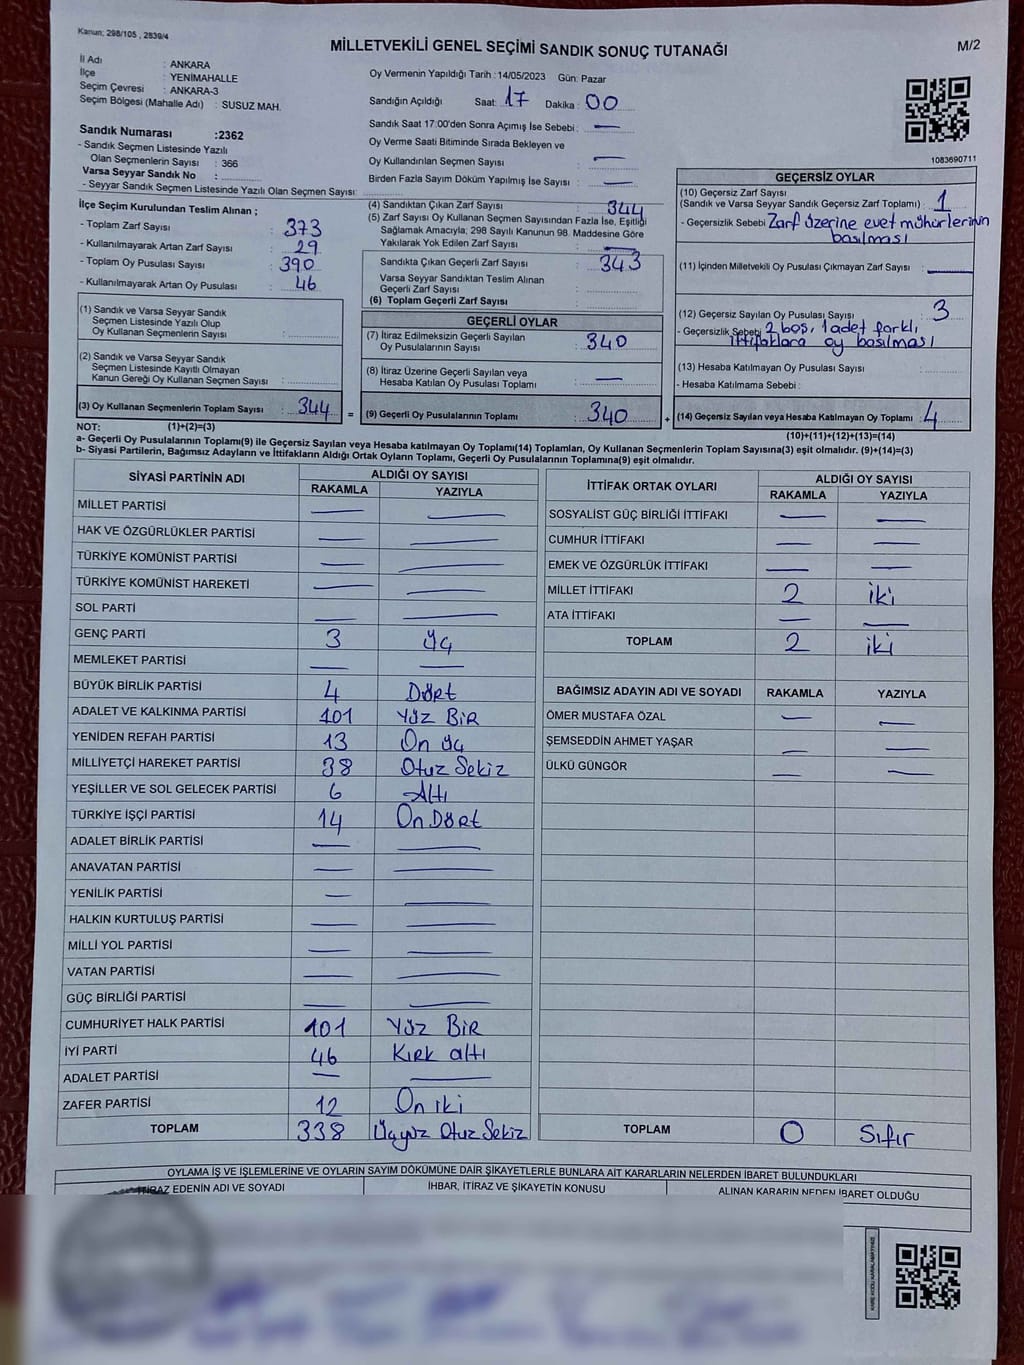 Kanun; 298/105 , 2839/4
MİLLETVEKİLİ GENEL SEÇİMİ SANDIK SONUÇ TUTANAĞI
M/2
İl Adı : ANKARA
İlçe : YENİMAHALLE
Seçim Çevresi : ANKARA-3
Seçim Bölgesi (Mahalle Adı) : SUSUZ MAH.
Sandık Numarası :2362
- Sandık Seçmen Listesinde Yazılı
Olan Seçmenlerin Sayısı : 366
Varsa Seyyar Sandık No :
- Seyyar Sandık Seçmen Listesinde Yazılı Olan Seçmen Sayısı:
Oy Vermenin Yapıldığı Tarih : 14/05/2023 Gün: Pazar
Sandığın Açıldığı Saat: 17 Dakika : 00
Sandık Saat 17:00'den Sonra Açımış İse Sebebi : —
Oy Verme Saati Bitiminde Sırada Bekleyen ve
Oy Kullandırılan Seçmen Sayısı : —
Birden Fazla Sayım Döküm Yapılmış İse Sayısı : —
1083690711
İlçe Seçim Kurulundan Teslim Alınan ;
- Toplam Zarf Sayısı : 373
- Kullanılmayarak Artan Zarf Sayısı : 29
- Toplam Oy Pusulası Sayısı : 390
- Kullanılmayarak Artan Oy Pusulası : 46
(1) Sandık ve Varsa Seyyar Sandık
Seçmen Listesinde Yazılı Olup
Oy Kullanan Seçmenlerin Sayısı :
(2) Sandık ve Varsa Seyyar Sandık
Seçmen Listesinde Kayıtlı Olmayan
Kanun Gereği Oy Kullanan Seçmen Sayısı :
(3) Oy Kullanan Seçmenlerin Toplam Sayısı : 344 =
(4) Sandıktan Çıkan Zarf Sayısı : 344
(5) Zarf Sayısı Oy Kullanan Seçmen Sayısından Fazla İse, Eşitliği
Sağlamak Amacıyla; 298 Sayılı Kanunun 98. Maddesine Göre
Yakılarak Yok Edilen Zarf Sayısı : —
Sandıkta Çıkan Geçerli Zarf Sayısı : 343
Varsa Seyyar Sandıktan Teslim Alınan
Geçerli Zarf Sayısı :
(6) Toplam Geçerli Zarf Sayısı :
GEÇERLİ OYLAR
(7) İtiraz Edilmeksizin Geçerli Sayılan
Oy Pusulalarının Sayısı : 340
(8) İtiraz Üzerine Geçerli Sayılan veya
Hesaba Katılan Oy Pusulası Toplamı : —
(9) Geçerli Oy Pusulalarının Toplamı : 340 +
GEÇERSİZ OYLAR
(10) Geçersiz Zarf Sayısı
(Sandık ve Varsa Seyyar Sandık Geçersiz Zarf Toplamı) : 1
- Geçersizlik Sebebi : Zarf üzerine evet mühürlerinin
basılması
(11) İçinden Milletvekili Oy Pusulası Çıkmayan Zarf Sayısı : —
(12) Geçersiz Sayılan Oy Pusulası Sayısı : 3
- Geçersizlik Sebebi : 2 boş, 1 adet farklı
ittifaklara oy basılması
(13) Hesaba Katılmayan Oy Pusulası Sayısı :
- Hesaba Katılmama Sebebi :
(14) Geçersiz Sayılan veya Hesaba Katılmayan Oy Toplamı : 4
NOT: (1)+(2)=(3)
(10)+(11)+(12)+(13)=(14)
a- Geçerli Oy Pusulalarının Toplamı(9) ile Geçersiz Sayılan veya Hesaba katılmayan Oy Toplamı(14) Toplamları, Oy Kullanan Seçmenlerin Toplam Sayısına(3) eşit olmalıdır. (9)+(14)=(3)
b- Siyasi Partilerin, Bağımsız Adayların ve İttifakların Aldığı Ortak Oyların Toplamı, Geçerli Oy Pusulalarının Toplamına(9) eşit olmalıdır.
SİYASİ PARTİNİN ADI ALDIĞI OY SAYISI
RAKAMLA YAZIYLA
MİLLET PARTİSİ — —
HAK VE ÖZGÜRLÜKLER PARTİSİ — —
TÜRKİYE KOMÜNİST PARTİSİ — —
TÜRKİYE KOMÜNİST HAREKETİ — —
SOL PARTİ — —
GENÇ PARTİ 3 Üç
MEMLEKET PARTİSİ — —
BÜYÜK BİRLİK PARTİSİ 4 Dört
ADALET VE KALKINMA PARTİSİ 101 Yüz Bir
YENİDEN REFAH PARTİSİ 13 On üç
MİLLİYETÇİ HAREKET PARTİSİ 38 Otuz Sekiz
YEŞİLLER VE SOL GELECEK PARTİSİ 6 Altı
TÜRKİYE İŞÇİ PARTİSİ 14 On Dört
ADALET BİRLİK PARTİSİ — —
ANAVATAN PARTİSİ — —
YENİLİK PARTİSİ — —
HALKIN KURTULUŞ PARTİSİ — —
MİLLİ YOL PARTİSİ — —
VATAN PARTİSİ — —
GÜÇ BİRLİĞİ PARTİSİ — —
CUMHURİYET HALK PARTİSİ 101 Yüz Bir
İYİ PARTİ 46 Kırk altı
ADALET PARTİSİ — —
ZAFER PARTİSİ 12 On iki
TOPLAM 338 Üçyüz Otuz Sekiz
İTTİFAK ORTAK OYLARI ALDIĞI OY SAYISI
RAKAMLA YAZIYLA
SOSYALİST GÜÇ BİRLİĞİ İTTİFAKI — —
CUMHUR İTTİFAKI — —
EMEK VE ÖZGÜRLÜK İTTİFAKI — —
MİLLET İTTİFAKI 2 iki
ATA İTTİFAKI — —
TOPLAM 2 iki
BAĞIMSIZ ADAYIN ADI VE SOYADI RAKAMLA YAZIYLA
ÖMER MUSTAFA ÖZAL — —
ŞEMSEDDİN AHMET YAŞAR — —
ÜLKÜ GÜNGÖR — —
TOPLAM 0 Sıfır
OYLAMA İŞ VE İŞLEMLERİNE VE OYLARIN SAYIM DÖKÜMÜNE DAİR ŞİKAYETLERLE BUNLARA AİT KARARLARIN NELERDEN İBARET BULUNDUKLARI
İTİRAZ EDENİN ADI VE SOYADI İHBAR, İTİRAZ VE ŞİKAYETİN KONUSU ALINAN KARARIN NEDEN İBARET OLDUĞU
KARE KODU KARALAMAYINIZ